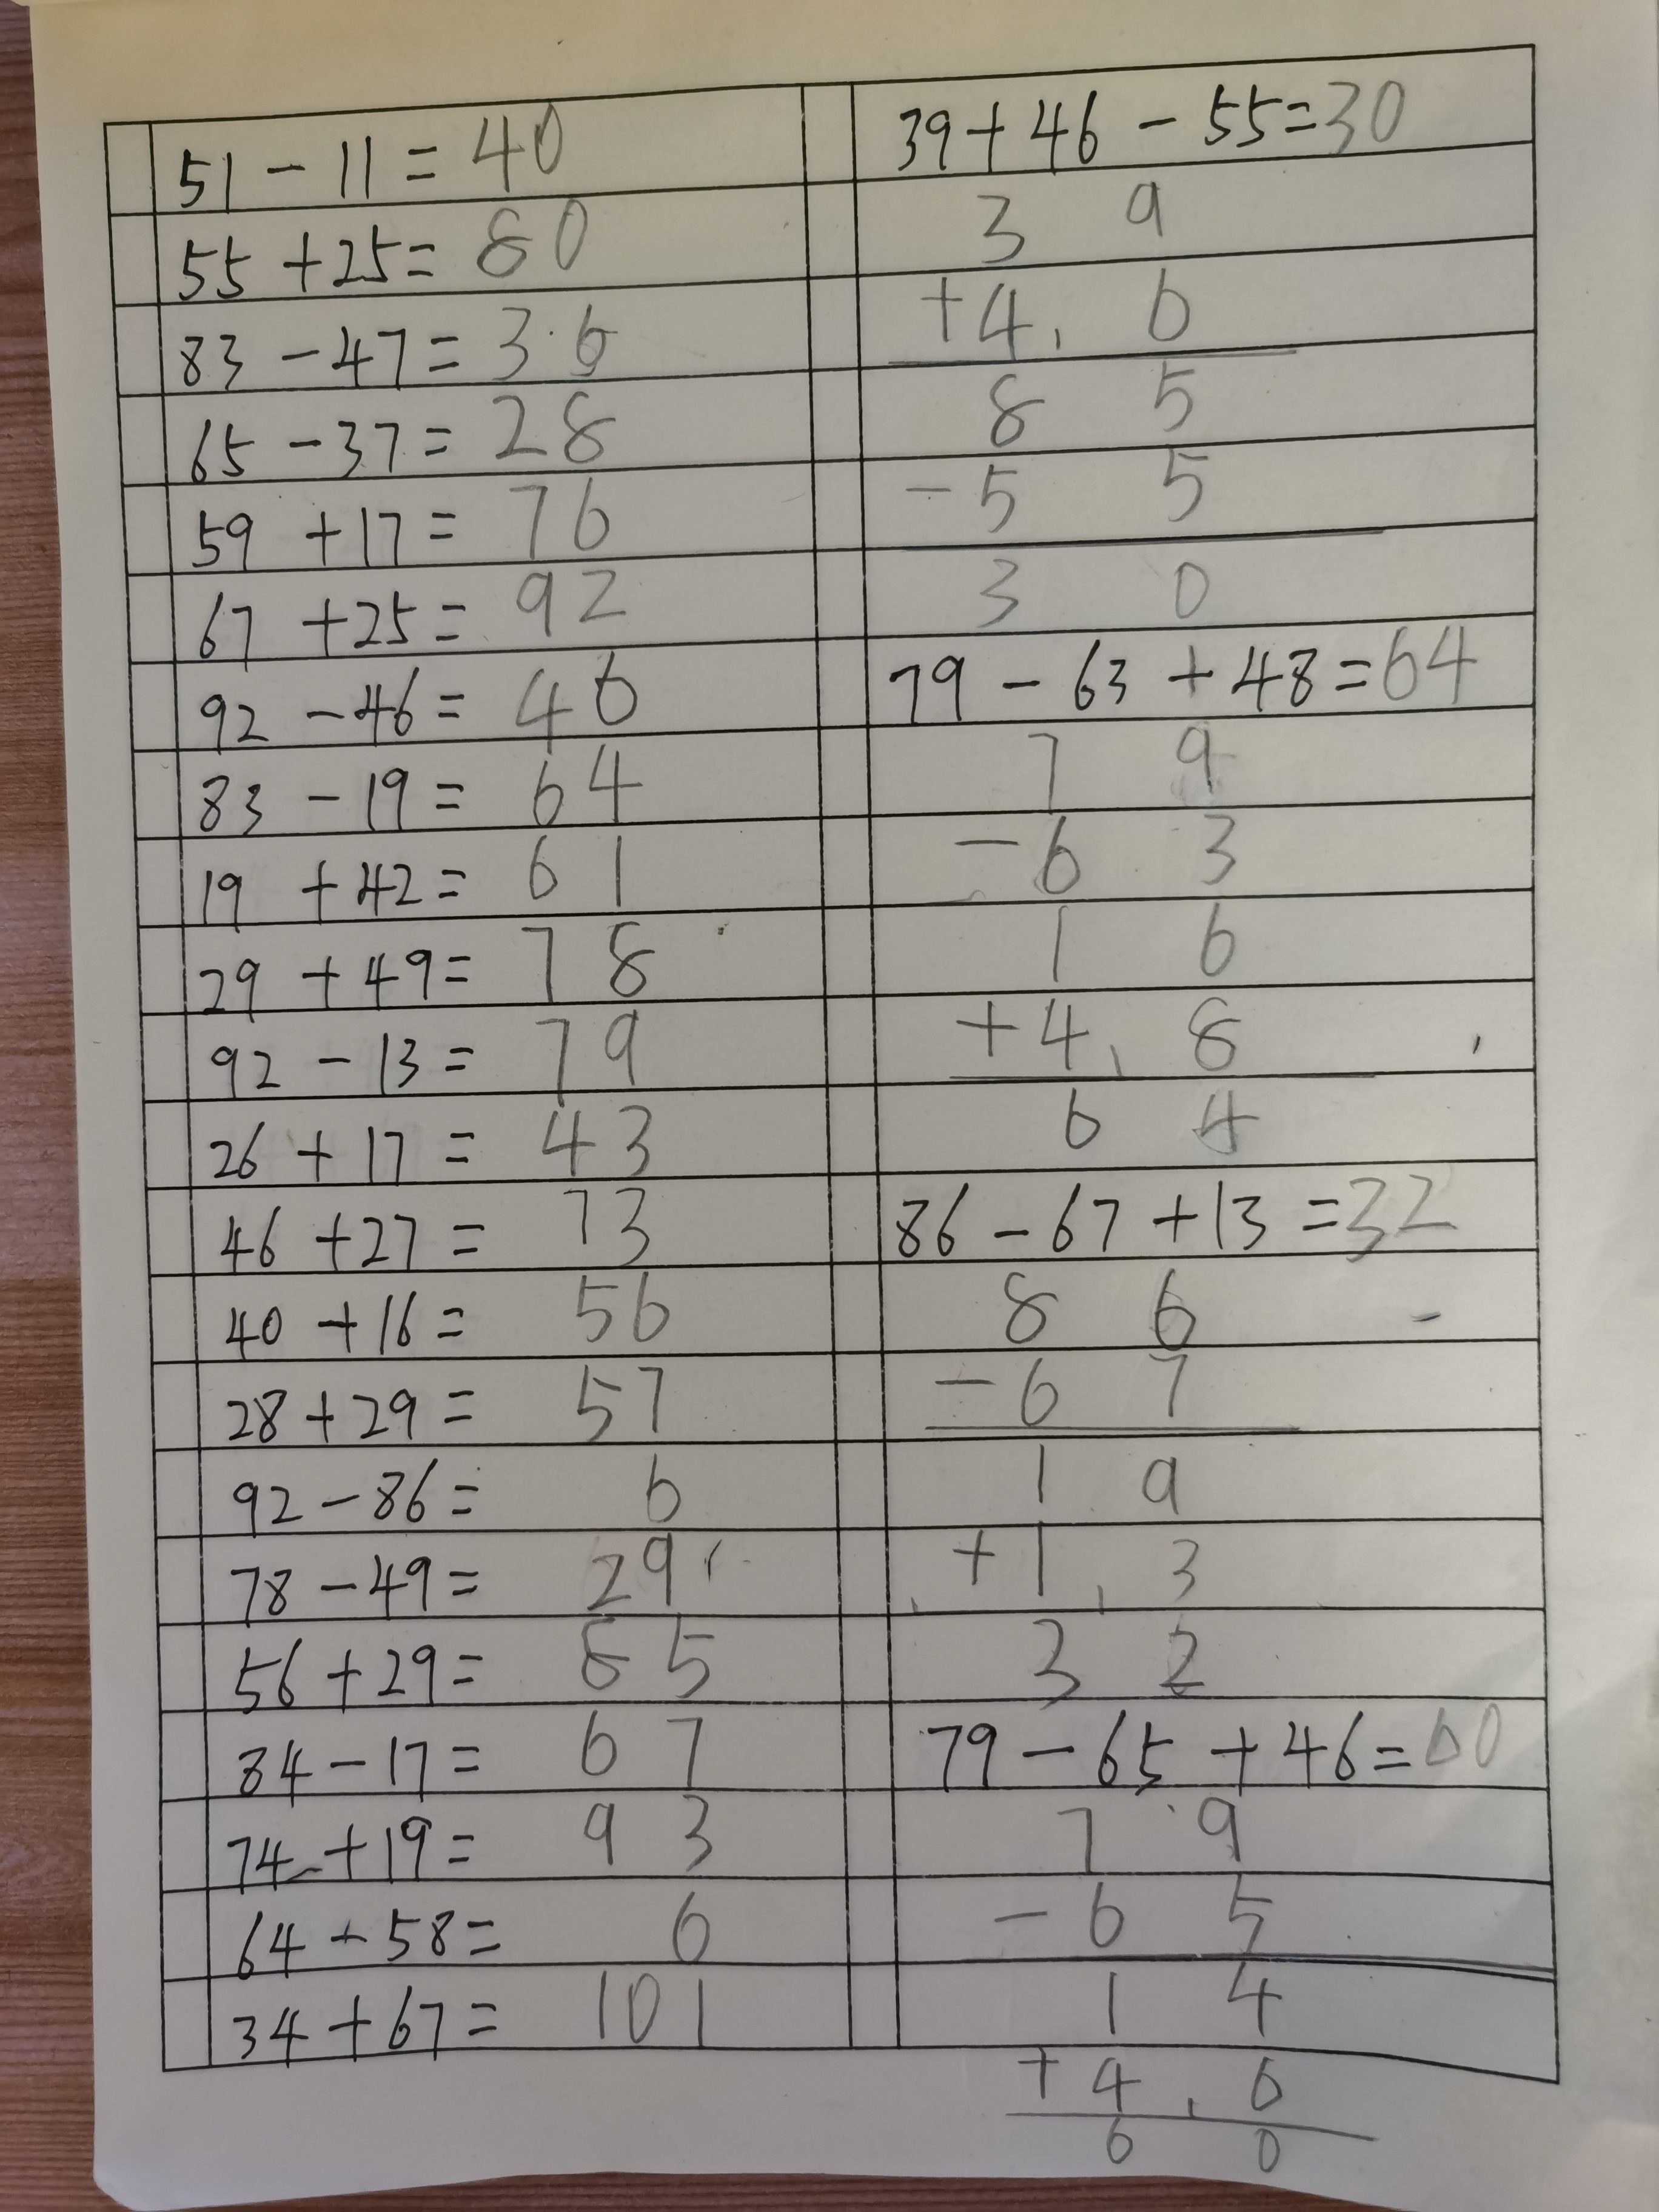 51 - 11 = 40
55 + 25 = 80
83 - 47 = 36
65 - 37 = 28
59 + 17 = 76
67 + 25 = 92
92 - 46 = 46
83 - 19 = 64
19 + 42 = 61
29 + 49 = 78
92 - 13 = 79
26 + 17 = 43
46 + 27 = 73
40 + 16 = 56
28 + 29 = 57
92 - 86 = 6
78 - 49 = 29
56 + 29 = 85
84 - 17 = 67
74 + 19 = 93
64 - 58 = 6
34 + 67 = 101
39 + 46 - 55 = 30
3 9
+ 4 6
8 5
- 5 5
3 0
79 - 63 + 48 = 64
7 9
- 6 3
1 6
+ 4 8
6 4
86 - 67 + 13 = 32
8 6
- 6 7
1 9
+ 1 3
3 2
79 - 65 + 46 = 60
7 9
- 6 5
1 4
+ 4 6
6 0